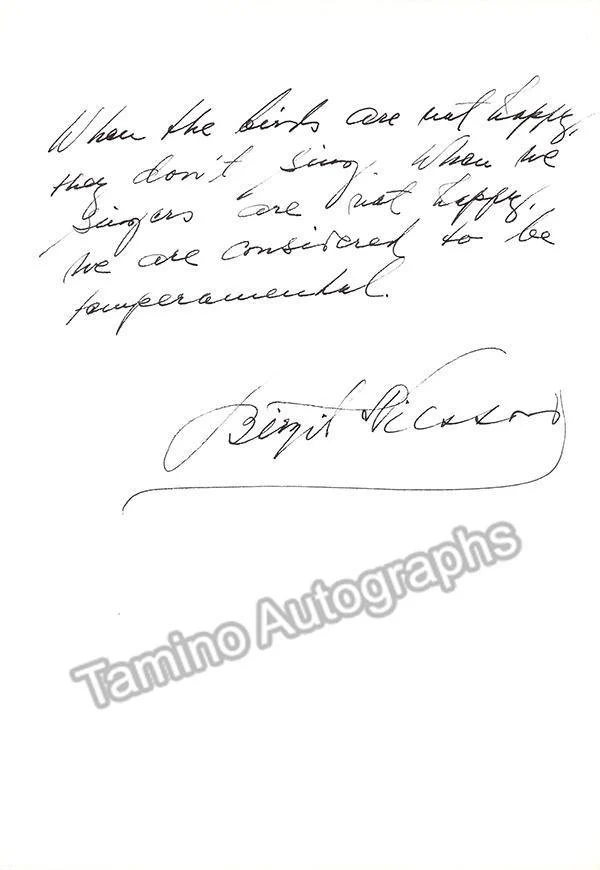 When the birds are not happy,
they don't sing. When we
singers are not happy,
we are considered to be
temperamental.
Birgit Nilsson
Tamino Autographs